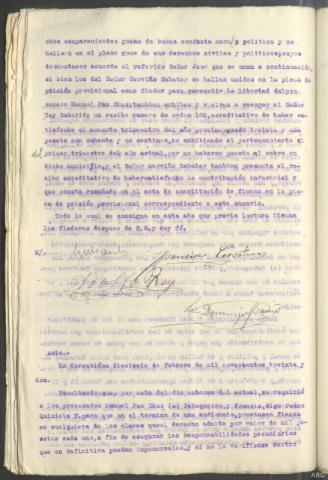 chos comparecientes gozan de buena conducta moral y politica y se
hallan en el pleno goce de sus derechos civiles y politicos, cuyos
documentos acuerda el referido Señor Juez que se unan a continuación,
si bien los del Señor Cerviño Sabater se hallan unidos en la pieza de
prisión provisional como fiador para garantir la libertad del pro-
cesado Manuel Paz Diaz, tambien exhiben y vuelven a recoger el Señor
Rey un recibo numero de orden 100, acreditativo de haber sa-
tisfecho el cuarto trimestre del año proximo pasado treinta y una
pesetas con sesenta y un centimos, no exhibiendo el perteneciente al
del primer trimestre del año actual, por no haberse puesto al cobro en
dicho municipio, y el Señor Cerviño Sabater tambien presenta el re-
cibo acreditativo de haber satisfecho la contribución industrial y
que consta reseñado en el acta de constitución de fianza en la pie-
za de prisión provisional correspondiente a este sumario.
Todo lo cual se consigna en esta acta que previa lectura firman
los fiadores despues de S.S. doy fé.
M/
Rey
Auto.-
En Corcubión diecisiete de febrero de mil novecientos treinta y
dos.
Resultando: que, por auto del dia catorce del actual, se requirió
a los procesados Manuel Paz Diaz (a) Pataqueiro, y Francis, digo Pedro
Quiniela X. para que en el termino de una audiencia, prestasen fianza
en cualquiera de las clases que el derecho admite por valor de mil pe-
setas cada uno, a fin de asegurar las responsabilidades pecuniarias
que en definitiva puedan imponerseles, y si no lo verificasen dentro
ARG